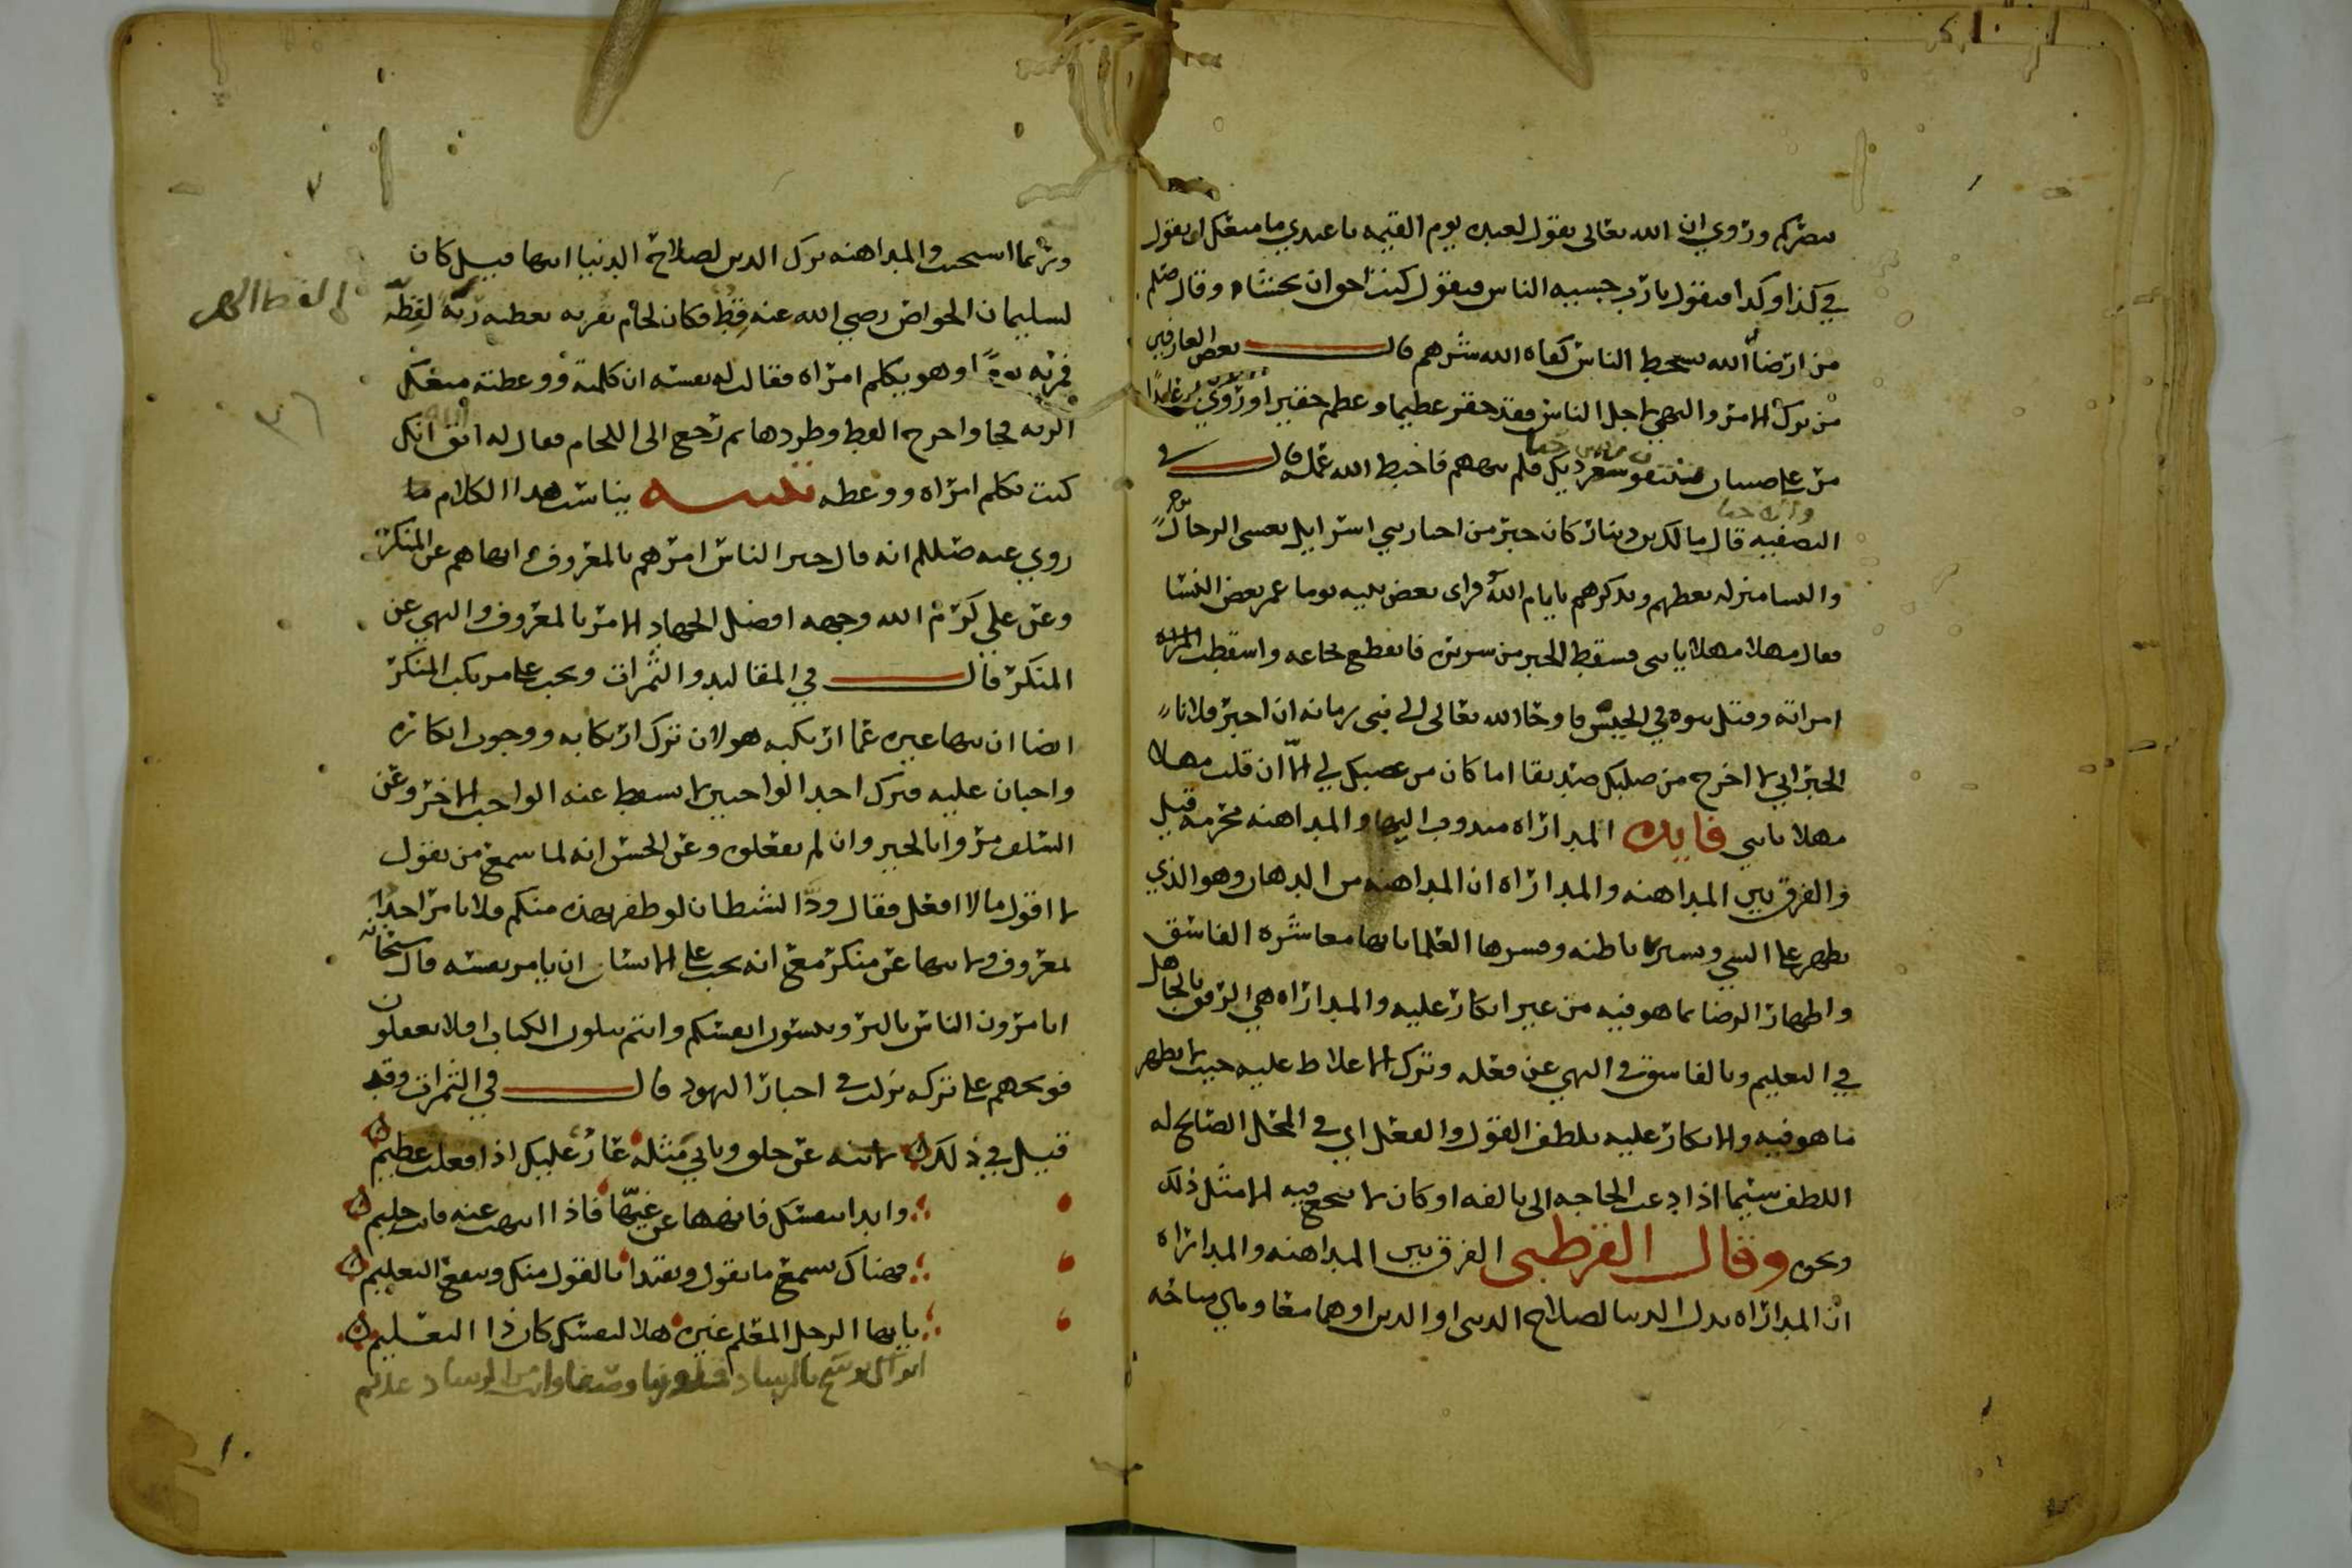 بصركم وروي ان الله تعالى يقول لعبده يوم القيمه يا عبدي ما منعك ان يقول
في كذا وكذا فيقول يا رب خشيه الناس فيقول كنت احق ان تخشاه وقال صلم
من ارضا الله بسخط الناس كفاه الله شرهم قال بعض العارفين
من ترك الامر والنهي لاجل الناس فقد حقر عظيما وعظم حقيرا وروي ان عابدا
مر على صبيان ينتفو ديك فلم ينههم فاحبط الله عمله قال في
التصفيه قال مالك بن دينار كان حبر من احبار بني اسرايل يغشى الرجال
والنسا منزله يعظهم ويذكرهم بايام الله فراى بعض بنيه يوما غمز بعض النسا
فقال مهلا مهلا يا بني فسقط الحبر من سريره فانقطع نخاعه واسقطت
امراته وقتل بنوه في الجيش فاوحا الله تعالى الى نبي زمانه ان اخبر فلانا
الحبر اني لا اخرج من صلبك صديقا اما كان من غضبك لي الا ان قلت مهلا
مهلا يا بني فايده المداراه مندوب اليها والمداهنه محرمه قيل
والفرق بين المداهنه والمداراه ان المداهنه من الدهان وهو الذي
يظهر على الشي ويستر باطنه وفسرها العلما بانها معاشره الفاسق
واظهار الرضا بما هو فيه من غير انكار عليه والمداراه هي الرفق بالجاهل
في التعليم وبالفاسق في النهي عن فعله وترك الاغلاظ عليه حيث لا يظهر
ما هو فيه والانكار عليه بلطف القول والفعل اي في المحل الصالح له
اللطف سيما اذا دعت الحاجه الى تالفه او كان لا ينجع فيه الا مثل ذلك
ونحوه وقال القرطبي الفرق بين المداهنه والمداراه
ان المداراه بذل الدنيا لصلاح الدنيا او الدين او هما معا وهي مباحه
وربما استحبت والمداهنه ترك الدين لصلاح الدنيا انتها قيل كان
لسليمان الخواص رضي الله عنه قط فكان لحام بقربه يعطيه ريه لقطه
فمر به يوما وهو يكلم امراه فقالت له نفسه ان كلمته ووعظته منعك
الريه فجا واخرج القط وطردها ثم رجع الى اللحام فقال له اتق الله انك
كنت تكلم امراه ووعظه تنبيه يناسب هذا الكلام ما
روي عنه صللم انه قال خير الناس امرهم بالمعروف وانهاهم عن المنكر
وعن علي كرم الله وجهه افضل الجهاد الامر بالمعروف والنهي عن
المنكر قال في المقاليد والثمرات ويجب على مرتكب المنكر
ايضا ان ينها غيره عما ارتكبه هو لان ترك ارتكابه ووجوب انكاره
واجبان عليه فترك احد الواجبين لا يسقط عنه الواجب الاخر وعن
السلف مروا بالخير وان لم تفعلوه وعن الحسن انه لما سمع من يقول
لا اقول ما لا افعل فقال ود الشيطان لو ظفر بهذه منكم فلا يامر احدا
بمعروف ولا ينها عن منكر مع انه يجب على الانسان ان يامر نفسه قال سبحانه
اتامرون الناس بالبر وتنسون انفسكم وانتم تتلون الكتاب افلا تعقلون
فوبخهم على تركه نزلت في احبار اليهود قال في الثمرات وقد
قيل في ذلك لا تنه عن خلق وتاتي مثله عار عليك اذا فعلت عظيم
وابدا بنفسك فانهها عن غيها فاذا انتهت عنه فانت حليم
فهناك يسمع ما تقول ويقتدا بالقول منك وينفع التعليم
يا ايها الرجل المعلم غيره هلا لنفسك كان ذا التعليم